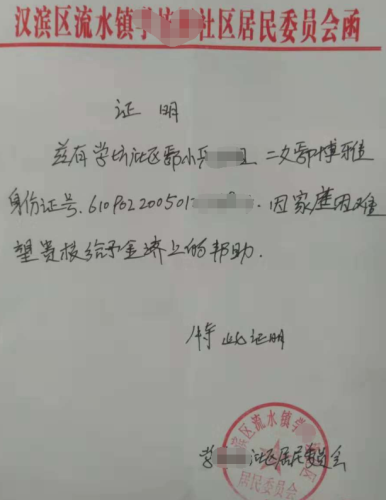 汉滨区流水镇学 社区居民委员会函
证 明
兹有学坊社区鄢小平 二女鄢博雅
身份证号.6109022005012 .因家庭困难
望贵校给予金济上的帮助.
特此证明
学 社区居民委员会
汉滨区流水镇学
居民委员会